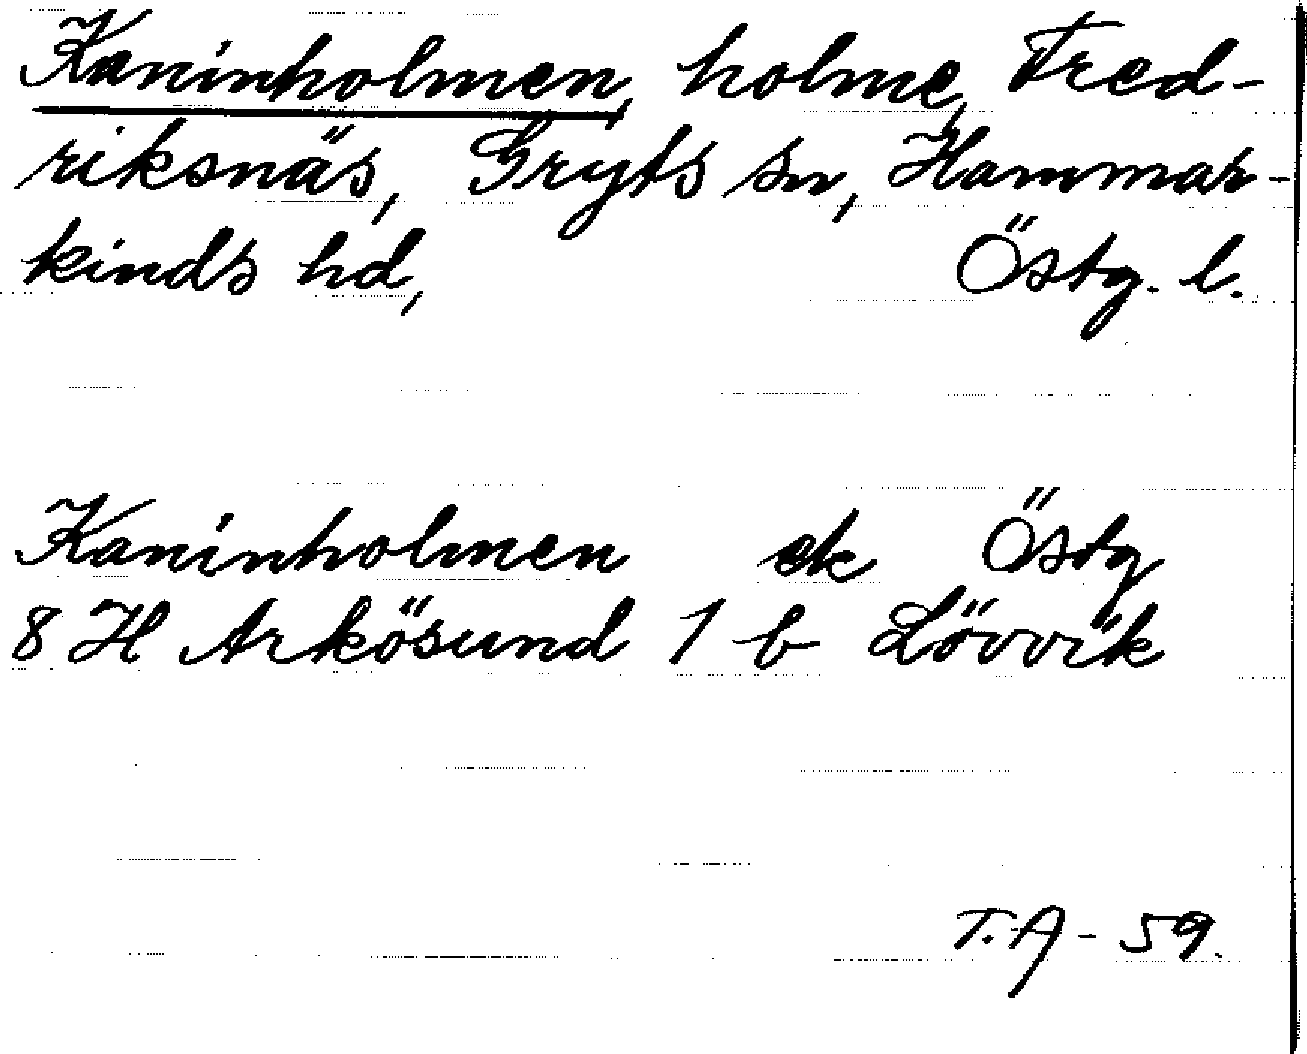 Kaninholmen, holme, Fred-
riksnäs, Gryts sn, Hammar-
kinds hd, Östg. l.
Kaninholmen ek Östg
8 H Arkösund 1 b Lövvik
T.A - 59.